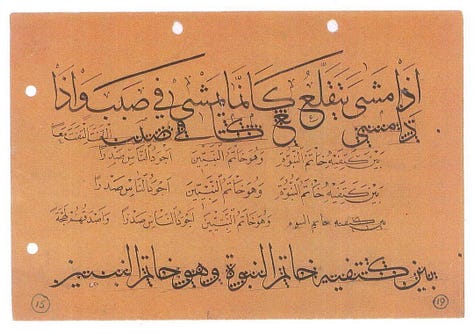 اِذَا مَشَى يَتَقَلَّعُ كَاَنَّمَا يَمْشِي فِي صَبَبٍ وَاِذَا
التفت التفت معا
بين كتفيه خاتم النبوة وهو خاتم النبيين اجود الناس صدرا
بين كتفيه خاتم النبوة وهو خاتم النبيين اجود الناس صدرا
بين كتفيه خاتم النبوة وهو خاتم النبيين اجود الناس صدرا واصدقهم لهجة
بين كتفيه خاتم النبوة وهو خاتم النبيين
19 15